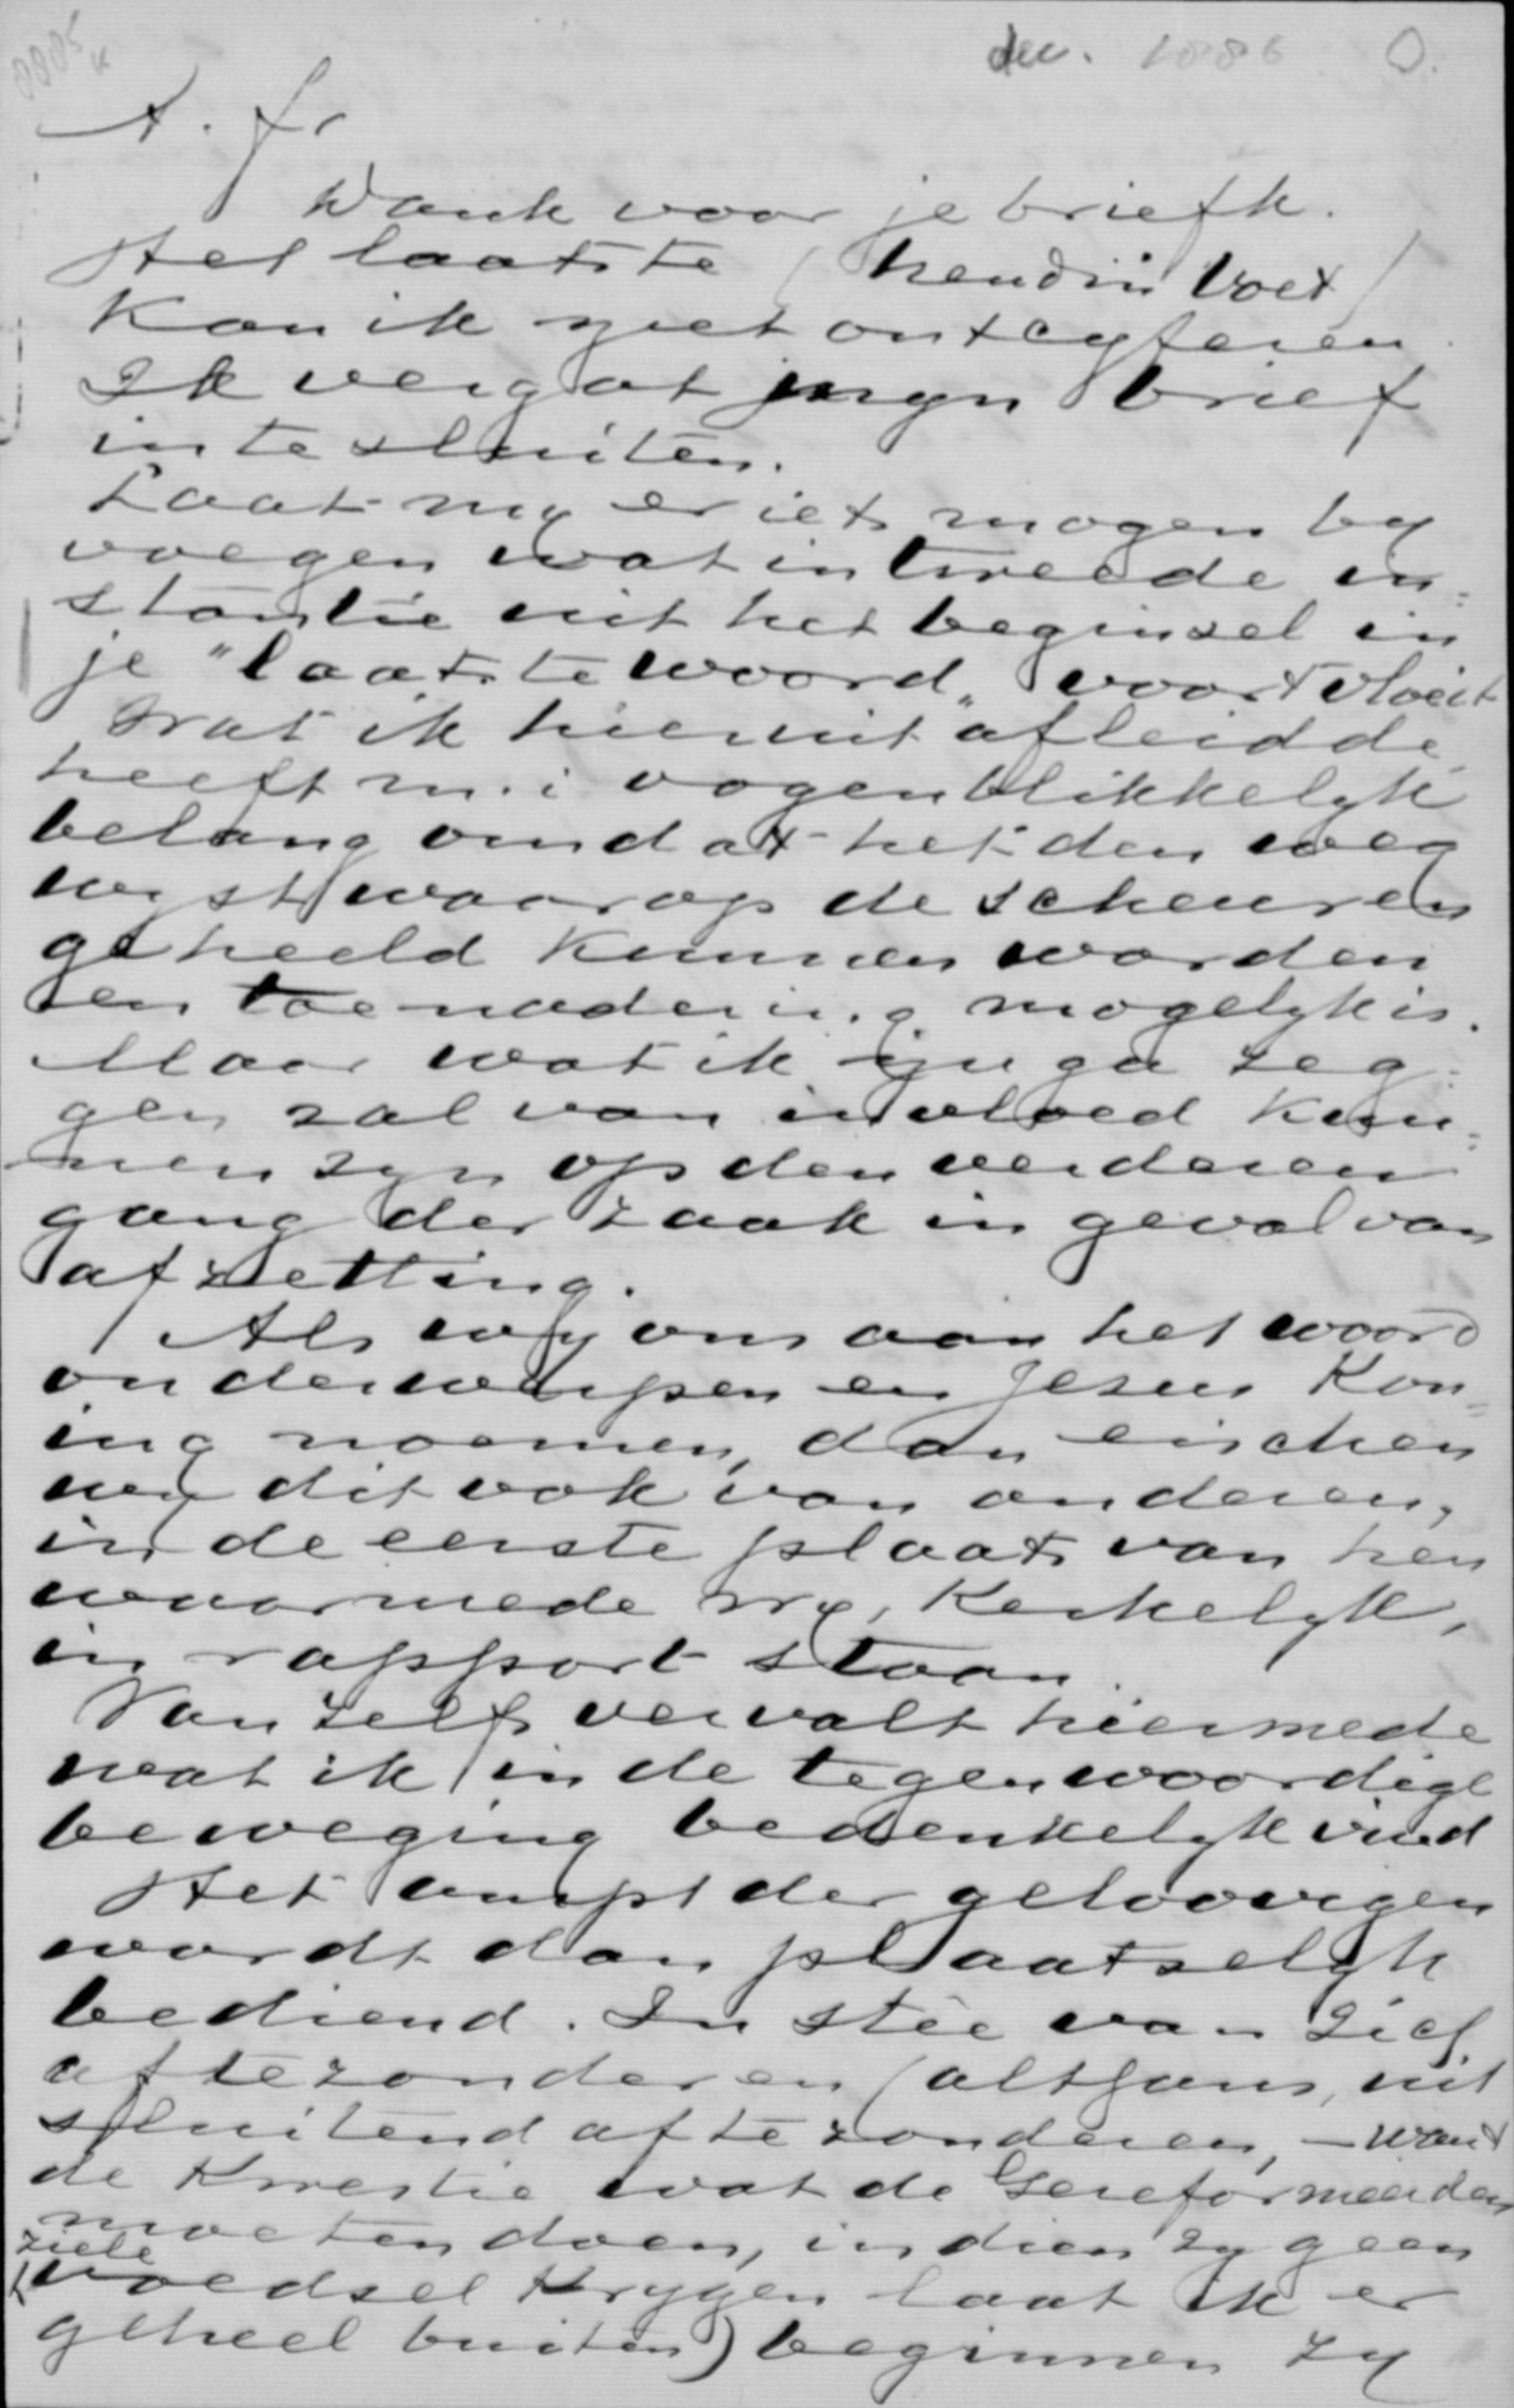 dec. 1886 O.
A. fr
Dank voor je briefk.
Het laatste ( voet )
Kan ik niet ontcyferen.
Ik vergat mijn brief
in te sluiten.
Laat my er iets mogen by
voegen wat in tweede in=
stantie uit het beginsel in
je "laatste woord" voortvloeit
Wat ik hieruit afleidde
heeft m.i oogenblikkelyk
belang omdat het den weg
wyst waarop de scheuren
geheeld kunnen worden
en toenadering mogelyk is.
Maar wat ik ga zeg=
gen zal van invloed kun=
nen zyn op den verderen
gang der zaak in geval van
afzetting.
Als wy ons aan het woord
onderwerpen en Jesus Kon=
ing noemen, dan eischen
wy dit ook van anderen,
in de eerste plaats van hen
waarmede wy, Kerkelyk,
in rapport staan.
Van zelf vervalt hiermede
wat ik in de tegenwoordige
beweging bedenkelyk vind
Het ampt der geloovigen
wordt dan plaatselyk
bediend. In stee van zich
af te zonderen (althans, uit
sluitend af te zonderen, - want
de Kwestie wat de Gereformeerden
moeten doen, indien zy geen
ziele
voedsel Krygen laat ik er
geheel buiten) beginnen zy